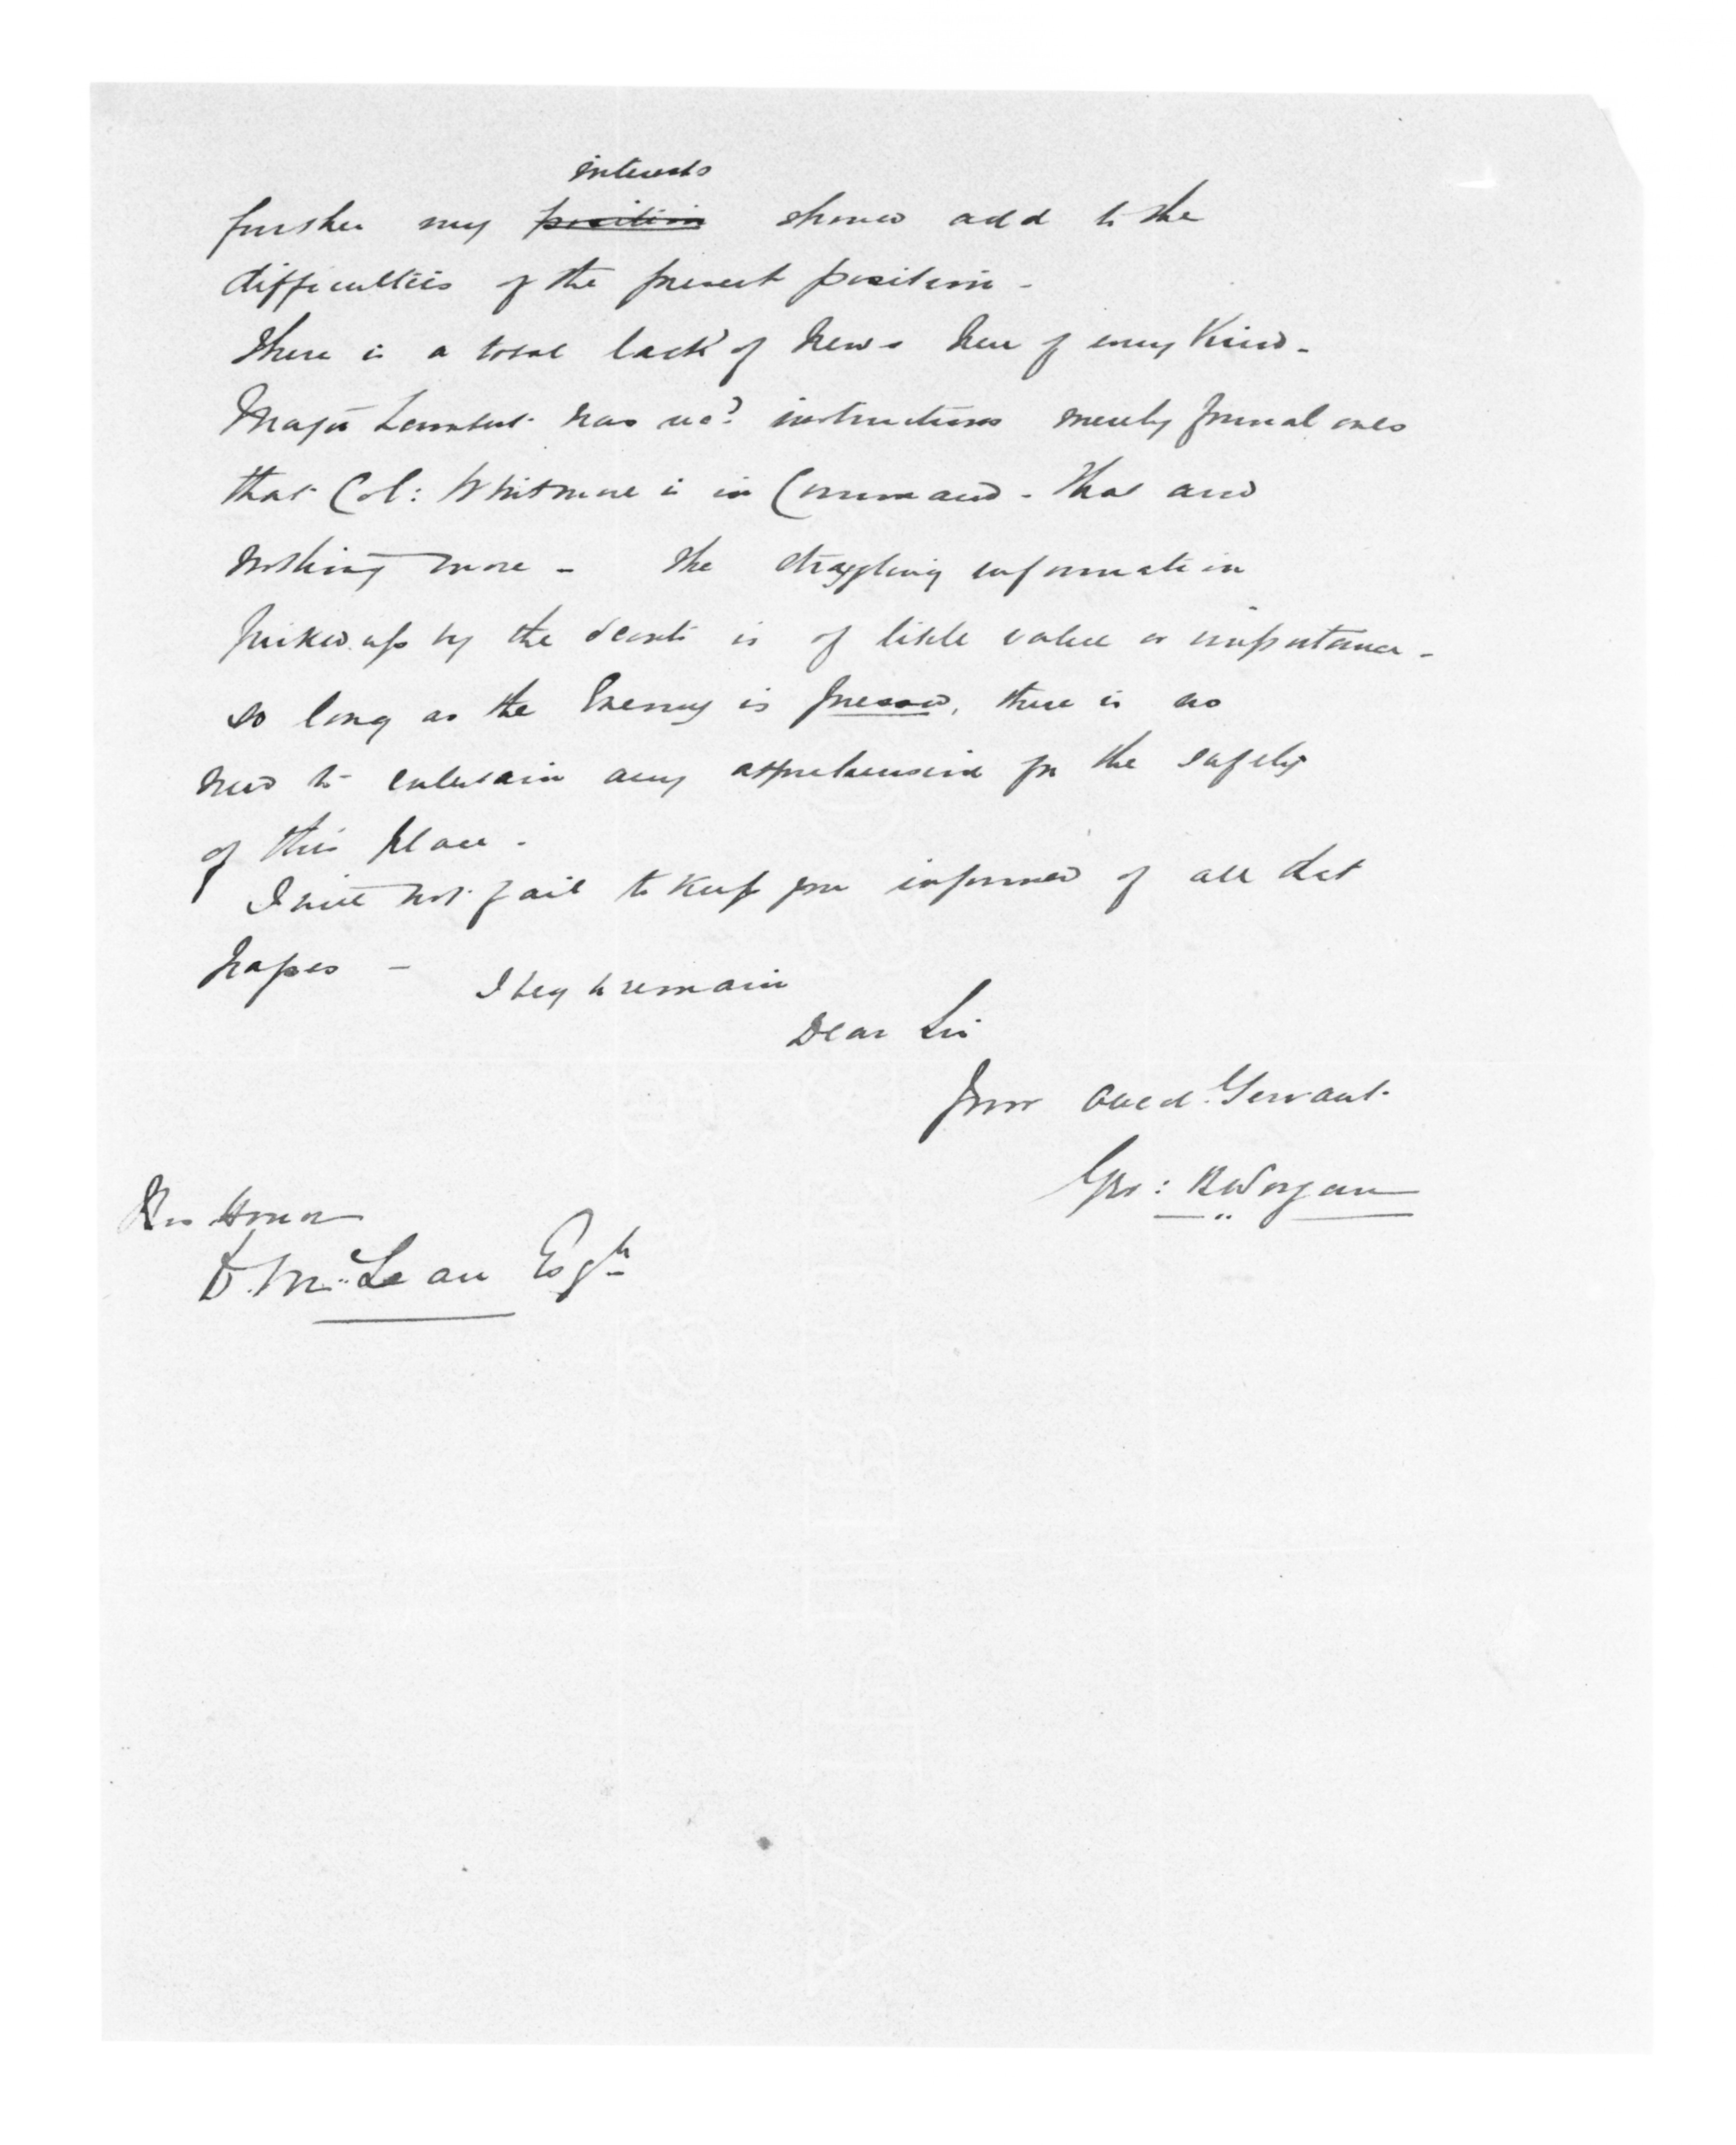 interests
further my position should add to the
difficulties of the present position -
There is a total lack of news here of every kind -
Major Lambert has recd instructions merely formal ones
that Col: Whitmore is in Command - that and
nothing more - The straggling information
picked up by the scouts is of little value or importance -
so long as the Enemy is pressed, there is no
need to entertain any apprehension for the safety
of this place -
I will not fail to keep you informed of all that
passes -
I beg to remain
Dear Sir
Your obed. Servant
Geo: B Worgan
His Honor
D. McLean Esqre